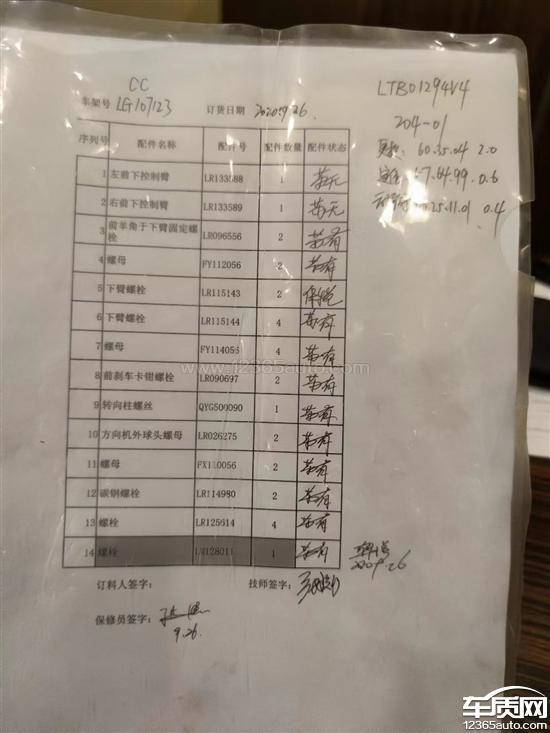 CC
LTB01294V4
车架号 LG107123 订货日期 2020.9.26.
204-01
60.35.04 2.0
序列号 配件名称 配件号 配件数量 配件状态
64.99 0.6
25.11.01 0.4
1 左前下控制臂 LR133588 1 苏无
2 右前下控制臂 LR133589 1 苏无
3 前羊角于下臂固定螺栓 LR096556 2 苏有
4 螺母 FY112056 2 苏有
5 下臂螺栓 LR115143 2
6 下臂螺栓 LR115144 4 苏有
7 螺母 FY114056 4 苏有
8 前刹车卡钳螺栓 LR090697 2 苏有
9 转向柱螺丝 QYG500090 1 苏有
10 方向机外球头螺母 LR026275 2 苏有
11 螺母 FX110056 2 苏有
12 碳钢螺栓 LR114980 2 苏有
13 螺栓 LR125614 4 苏有
14 螺栓 LR128011 1 苏有
订料人签字： 技师签字：
保修员签字：
9.26.
www.12365auto.com
车质网
12365auto.com